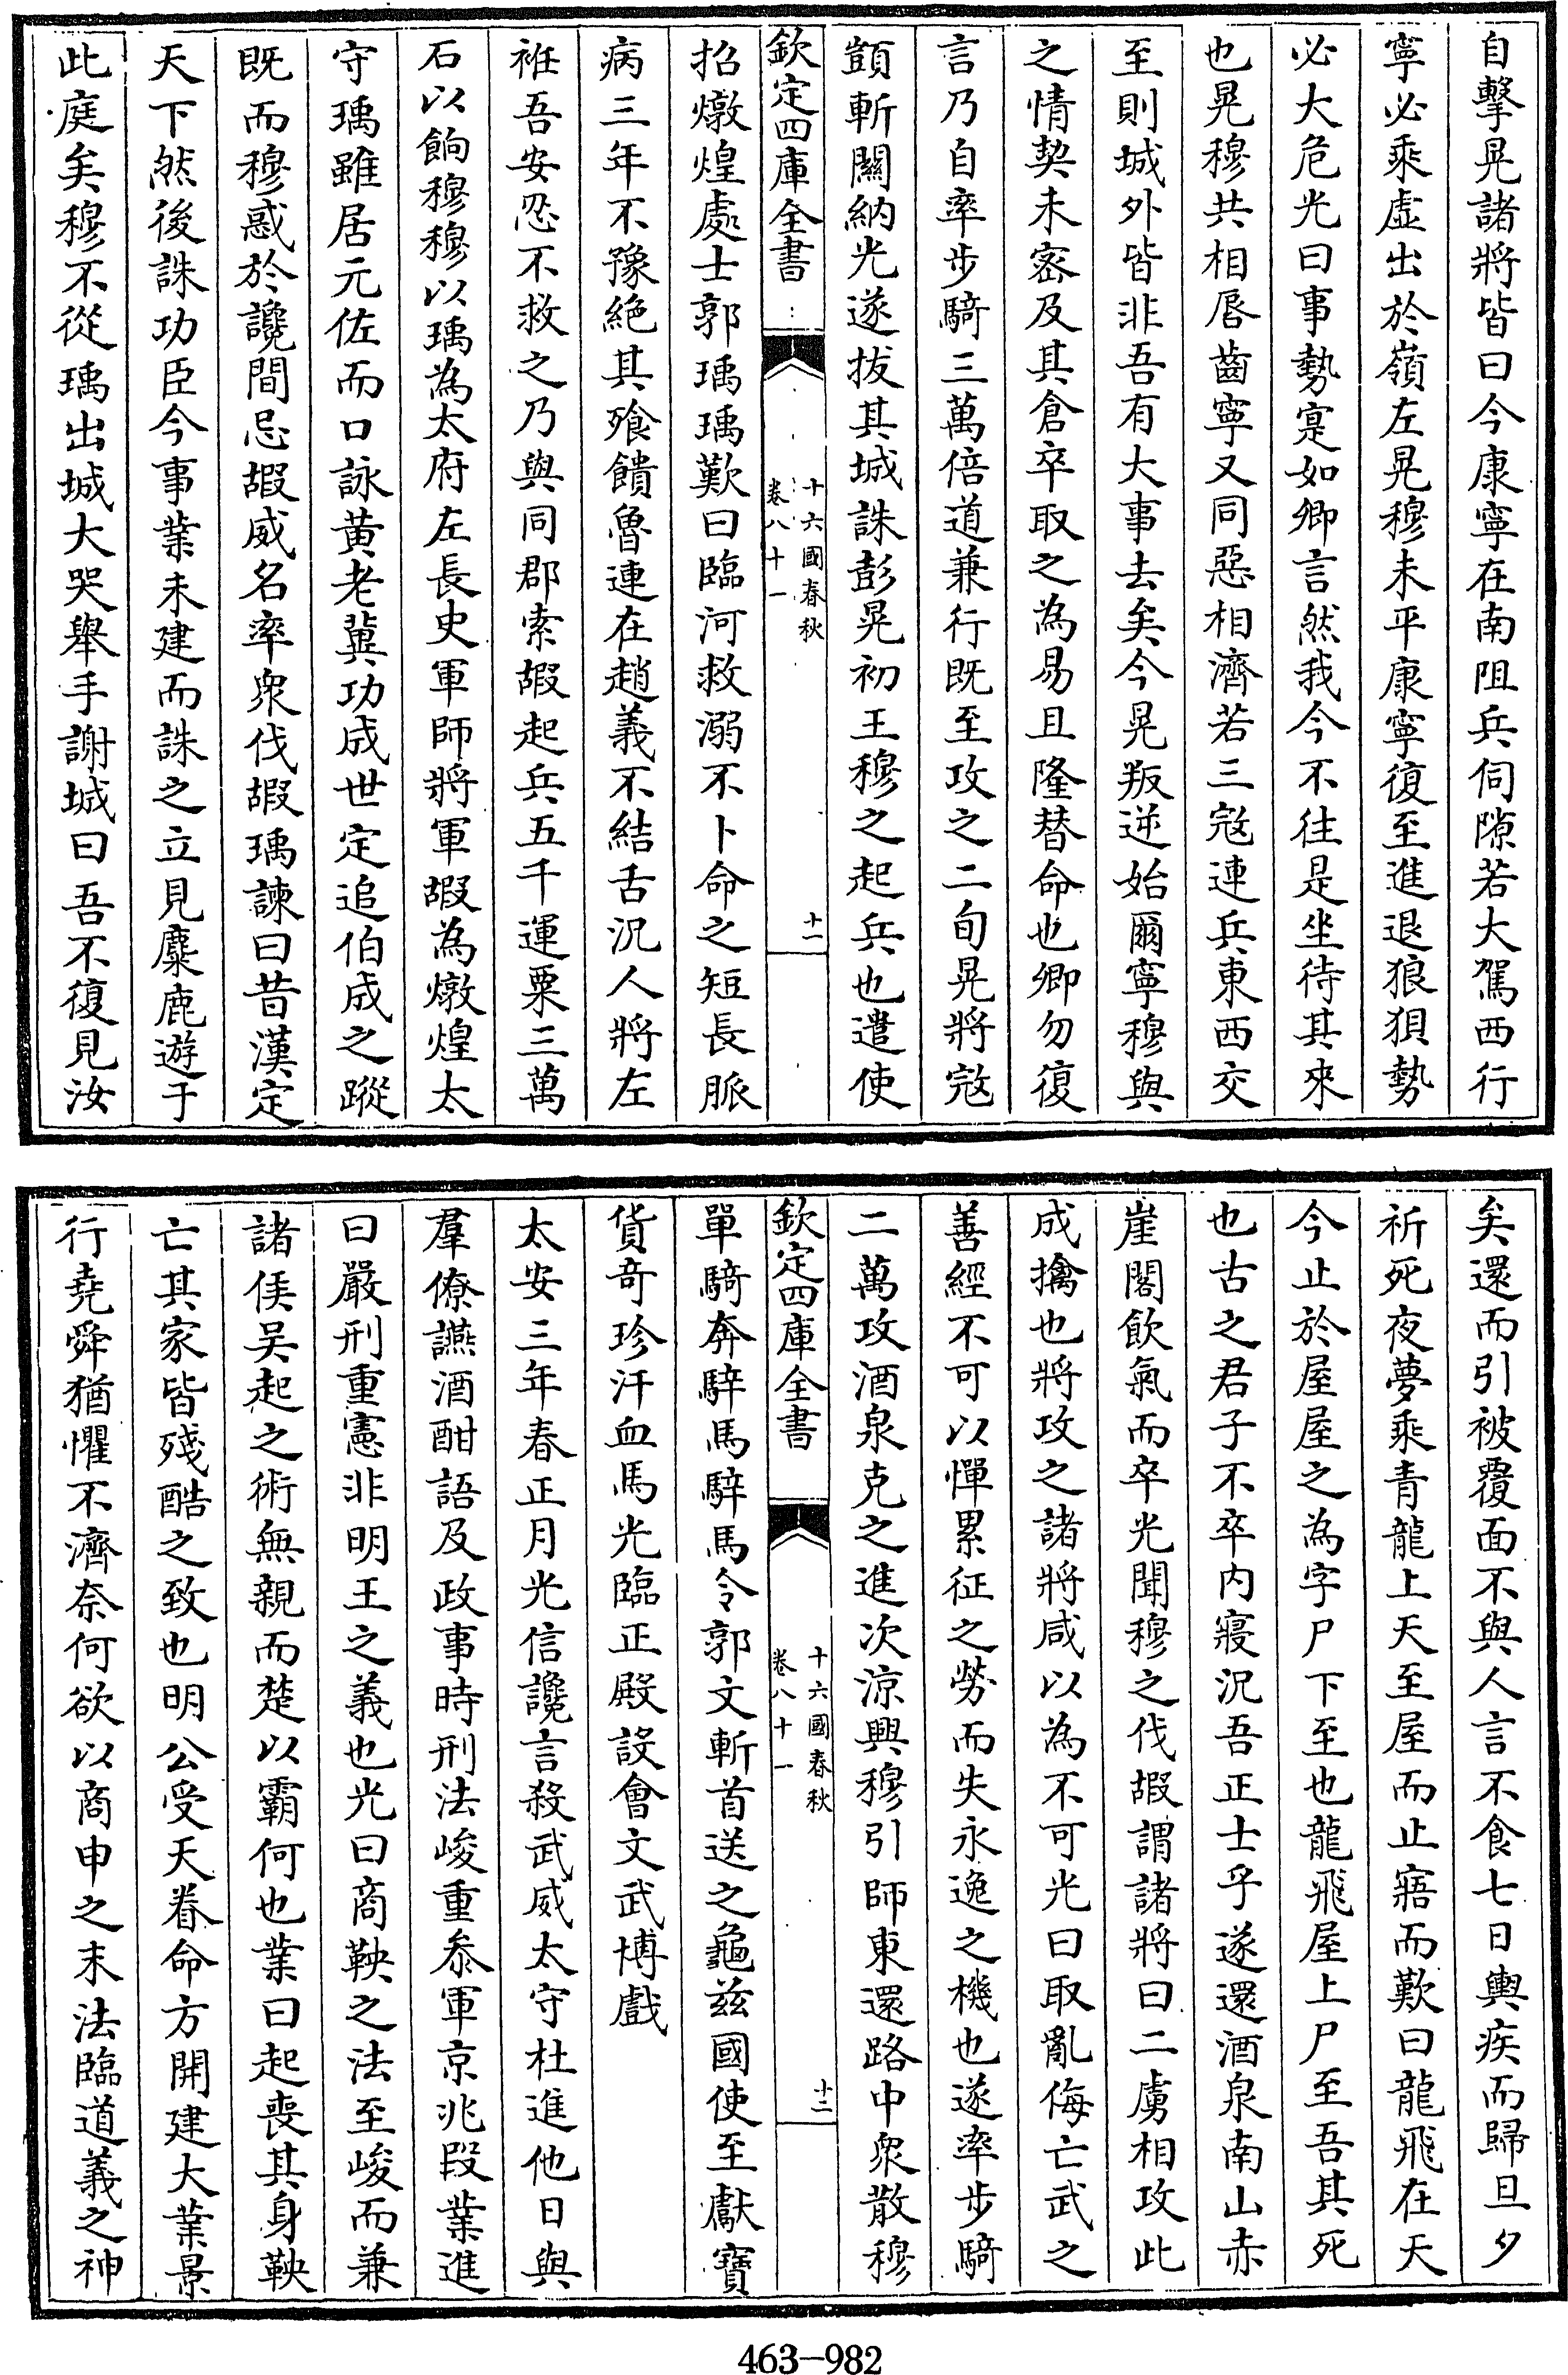 自擊晃諸將皆曰今康寧在南阻兵伺隙若大駕西行
寧必乘虛出於嶺左晃穆未平康寧復至進退狼狽勢
必大危光曰事勢寔如卿言然我今不往是坐待其來
也晃穆共相唇齒寧又同惡相濟若三寇連兵東西交
至則城外皆非吾有大事去矣今晃叛逆始爾寧穆與
之情契未密及其倉卒取之為易且隆替命也卿勿復
言乃自率步騎三萬倍道兼行既至攻之二旬晃將寇
顗斬關納光遂拔其城誅彭晃初王穆之起兵也遣使
欽定四庫全書
十六國春秋
卷八十一
十一
招燉煌處士郭瑀瑀歎曰臨河救溺不卜命之短長脈
病三年不豫絕其飱饋魯連在趙義不結舌況人將左
袵吾安忍不救之乃與同郡索嘏起兵五千運粟三萬
石以餉穆穆以瑀為太府左長史軍師將軍嘏為燉煌太
守瑀雖居元佐而口詠黃老冀功成世定追伯成之蹤
既而穆惑於讒間忌嘏威名率衆伐嘏瑀諫曰昔漢定
天下然後誅功臣今事業未建而誅之立見麋鹿遊于
此庭矣穆不從瑀出城大哭舉手謝城曰吾不復見汝
矣還而引被覆面不與人言不食七日輿疾而歸旦夕
祈死夜夢乘青龍上天至屋而止寤而歎曰龍飛在天
今止於屋屋之為字尸下至也龍飛屋上尸至吾其死
也古之君子不卒內寢況吾正士乎遂還酒泉南山赤
崖閣飲氣而卒光聞穆之伐嘏謂諸將曰二虜相攻此
成擒也將攻之諸將咸以為不可光曰取亂侮亡武之
善經不可以憚累征之勞而失永逸之機也遂率步騎
二萬攻酒泉克之進次涼興穆引師東還路中衆散穆
欽定四庫全書
十六國春秋
卷八十一
十二
單騎奔騂馬騂馬令郭文斬首送之龜茲國使至獻寶
貨奇珍汗血馬光臨正殿設會文武博戲
太安三年春正月光信讒言殺武威太守杜進他日與
羣僚讌酒酣語及政事時刑法峻重叅軍京兆段業進
曰嚴刑重憲非明王之義也光曰商鞅之法至峻而兼
諸侯吳起之術無親而楚以霸何也業曰起喪其身鞅
亡其家皆殘酷之致也明公受天眷命方開建大業景
行堯舜猶懼不濟奈何欲以商申之末法臨道義之神
463-982